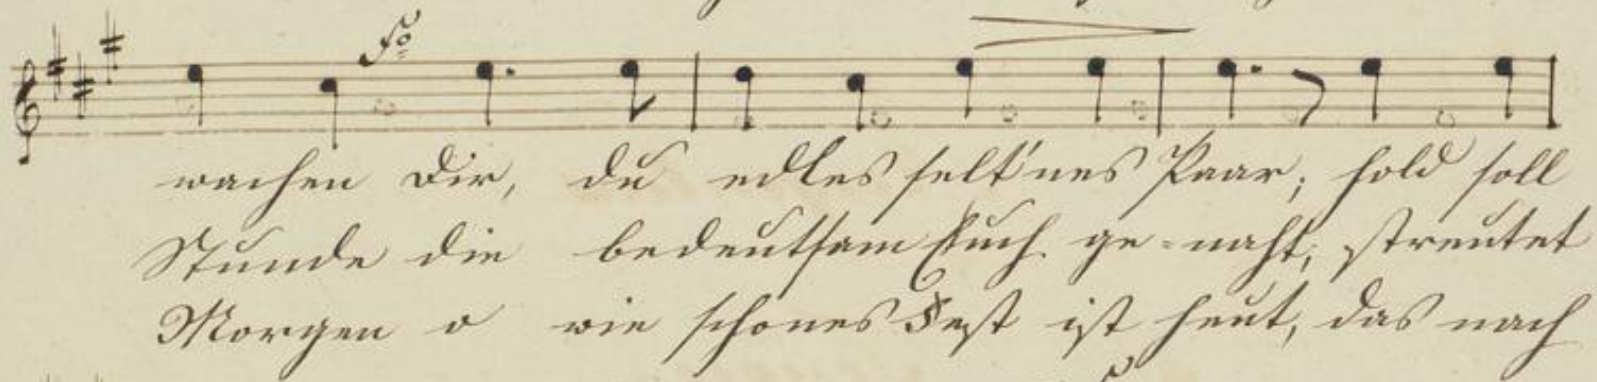 fo
wachen Dir, du edles selt'nes Paar; hold soll
Stunde die bedeutsam Euch ge-naht, streutet
Morgen o wie schones Fest ist heut, das nach